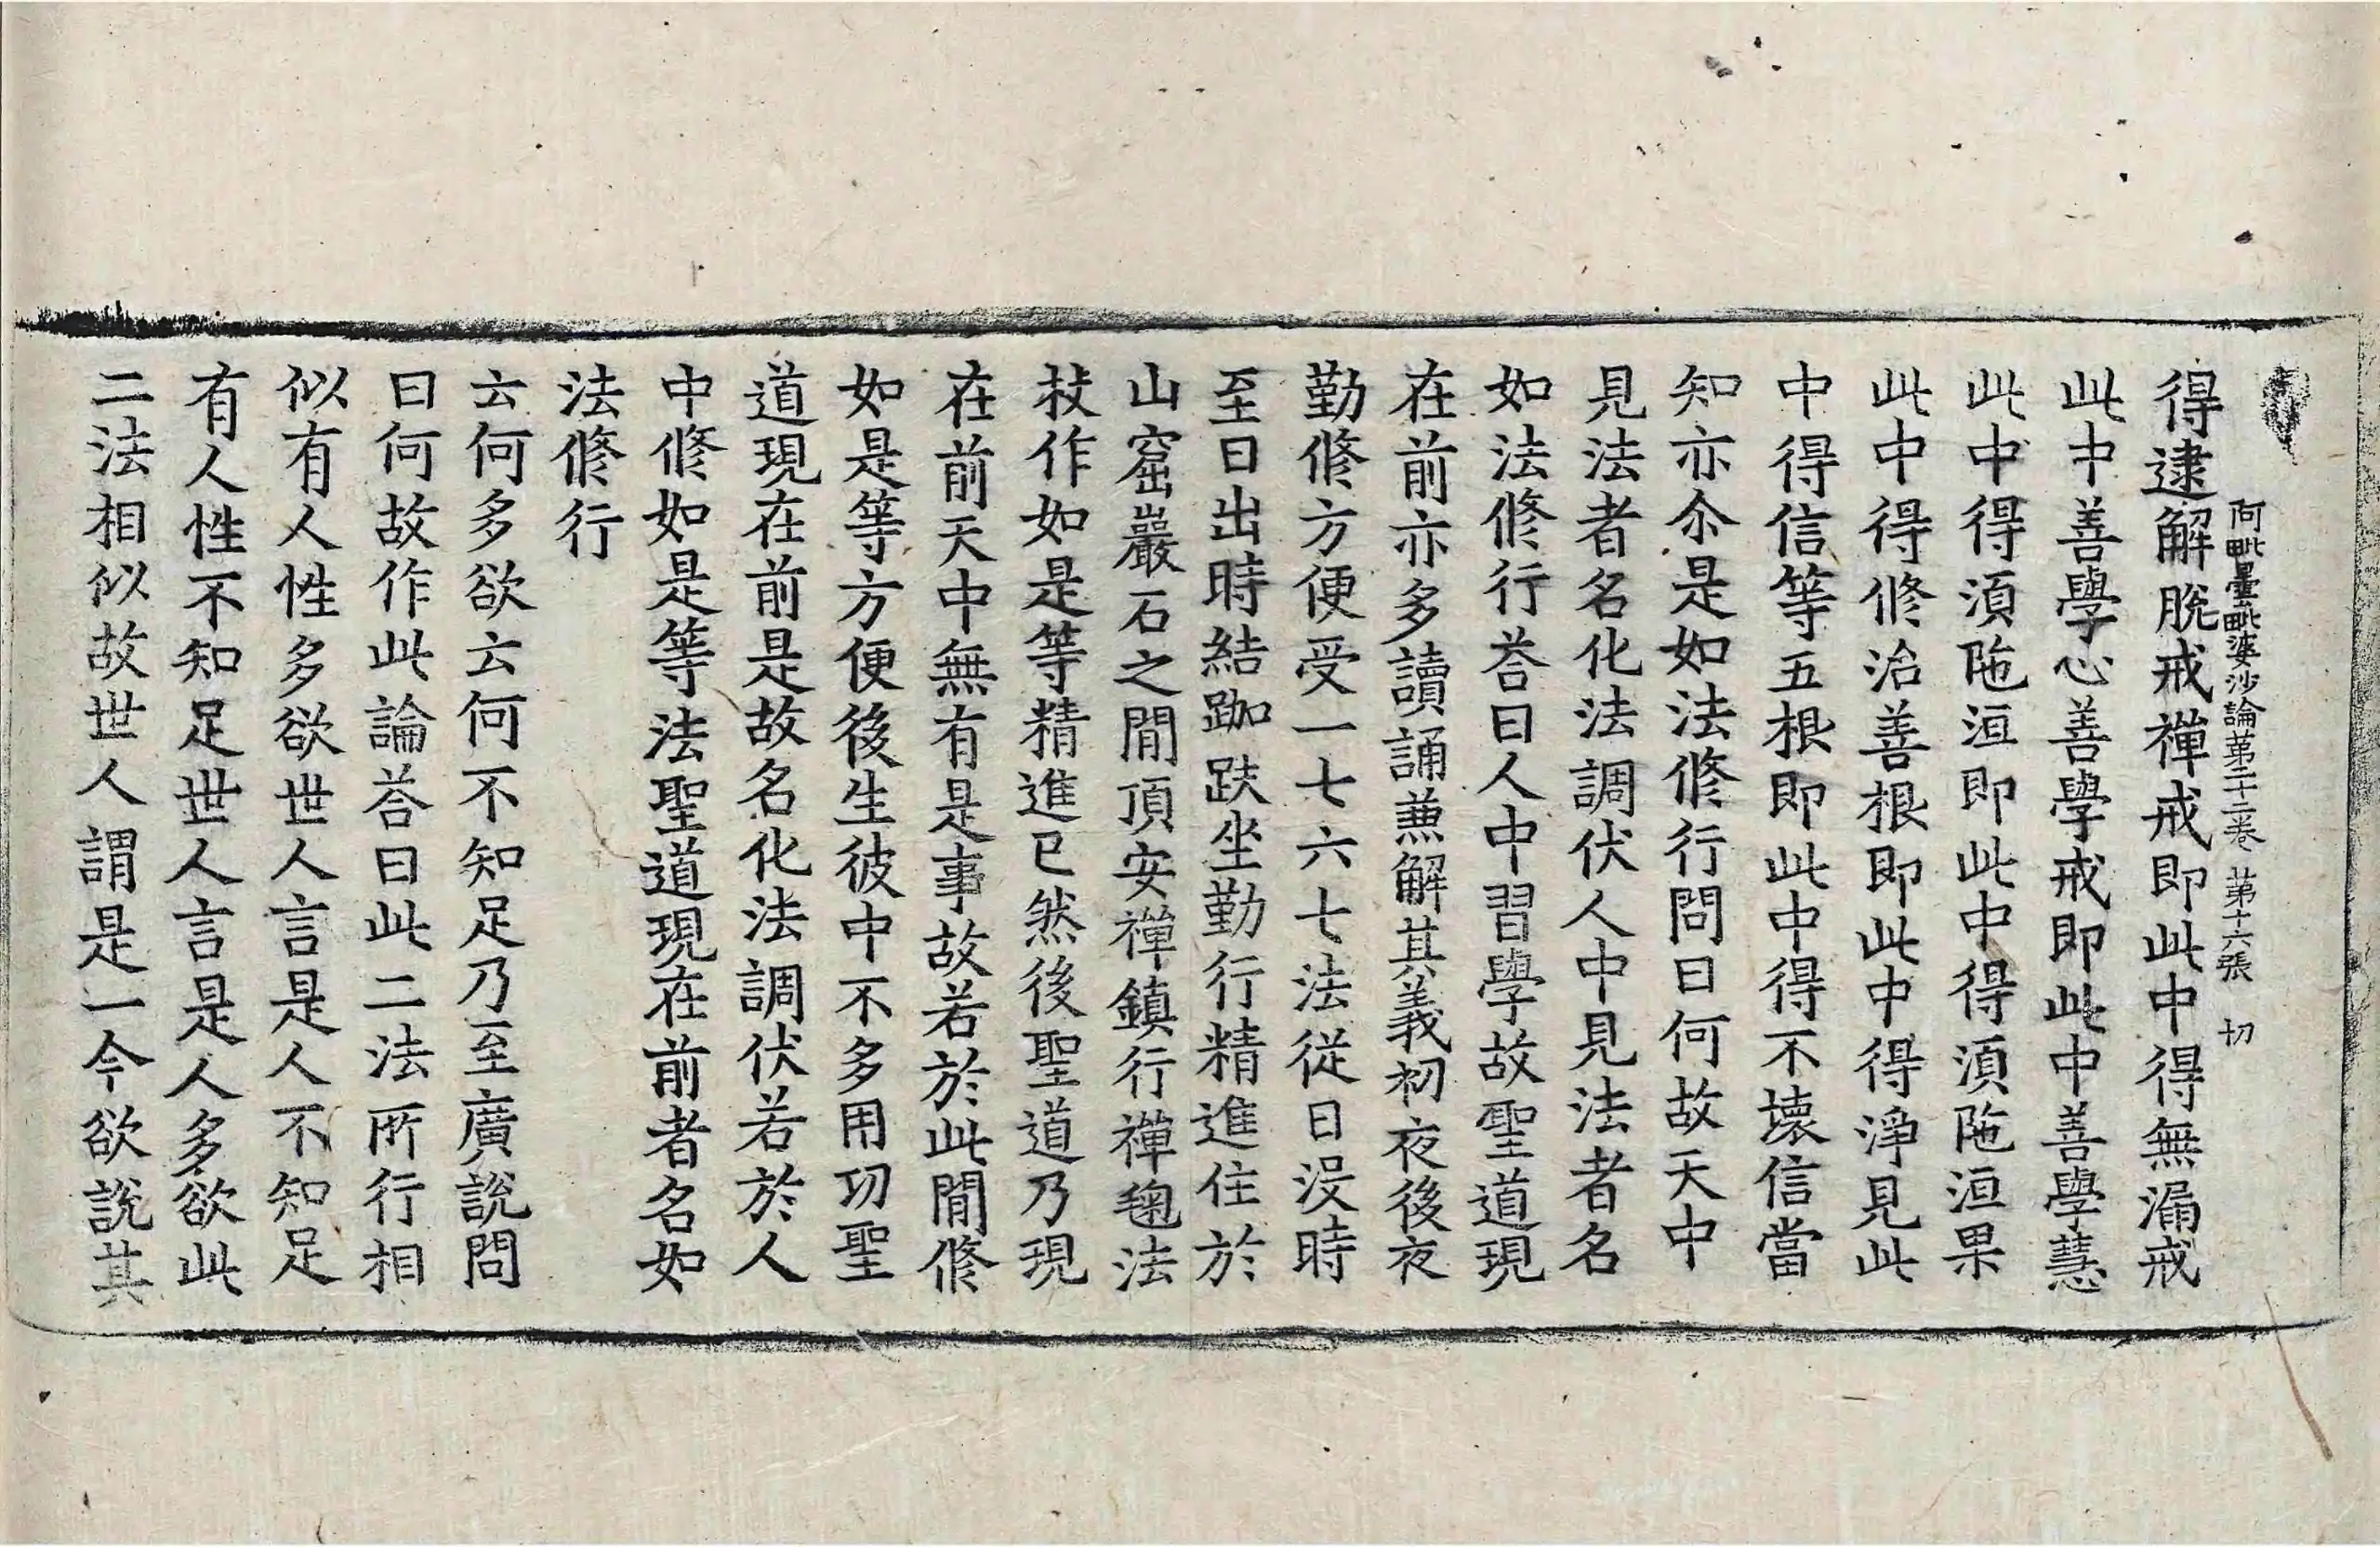 阿毗曇毗婆沙論第二十二卷 第十六張 切
得逮解脫戒禪戒即此中得無漏戒
此中善學心善學戒即此中善學慧
此中得湏陁洹即此中得湏陁洹果
此中得修治善根即此中得淨見此
中得信等五根即此中得不壞信當
知亦尒是如法修行問曰何故天中
見法者名化法調伏人中見法者名
如法修行荅曰人中習學故聖道現
在前亦多讀誦兼解其義初夜後夜
勤修方便受一七六七法從日沒時
至日出時結跏趺坐勤行精進住於
山窟巖石之閒頂安禪鎮行禪毱法
杖作如是等精進已然後聖道乃現
在前天中無有是事故若於此閒修
如是等方便後生彼中不多用功聖
道現在前是故名化法調伏若於人
中修如是等法聖道現在前者名如
法修行
云何多欲云何不知足乃至廣說問
曰何故作此論荅曰此二法所行相
似有人性多欲世人言是人不知足
有人性不知足世人言是人多欲此
二法相似故世人謂是一今欲說其